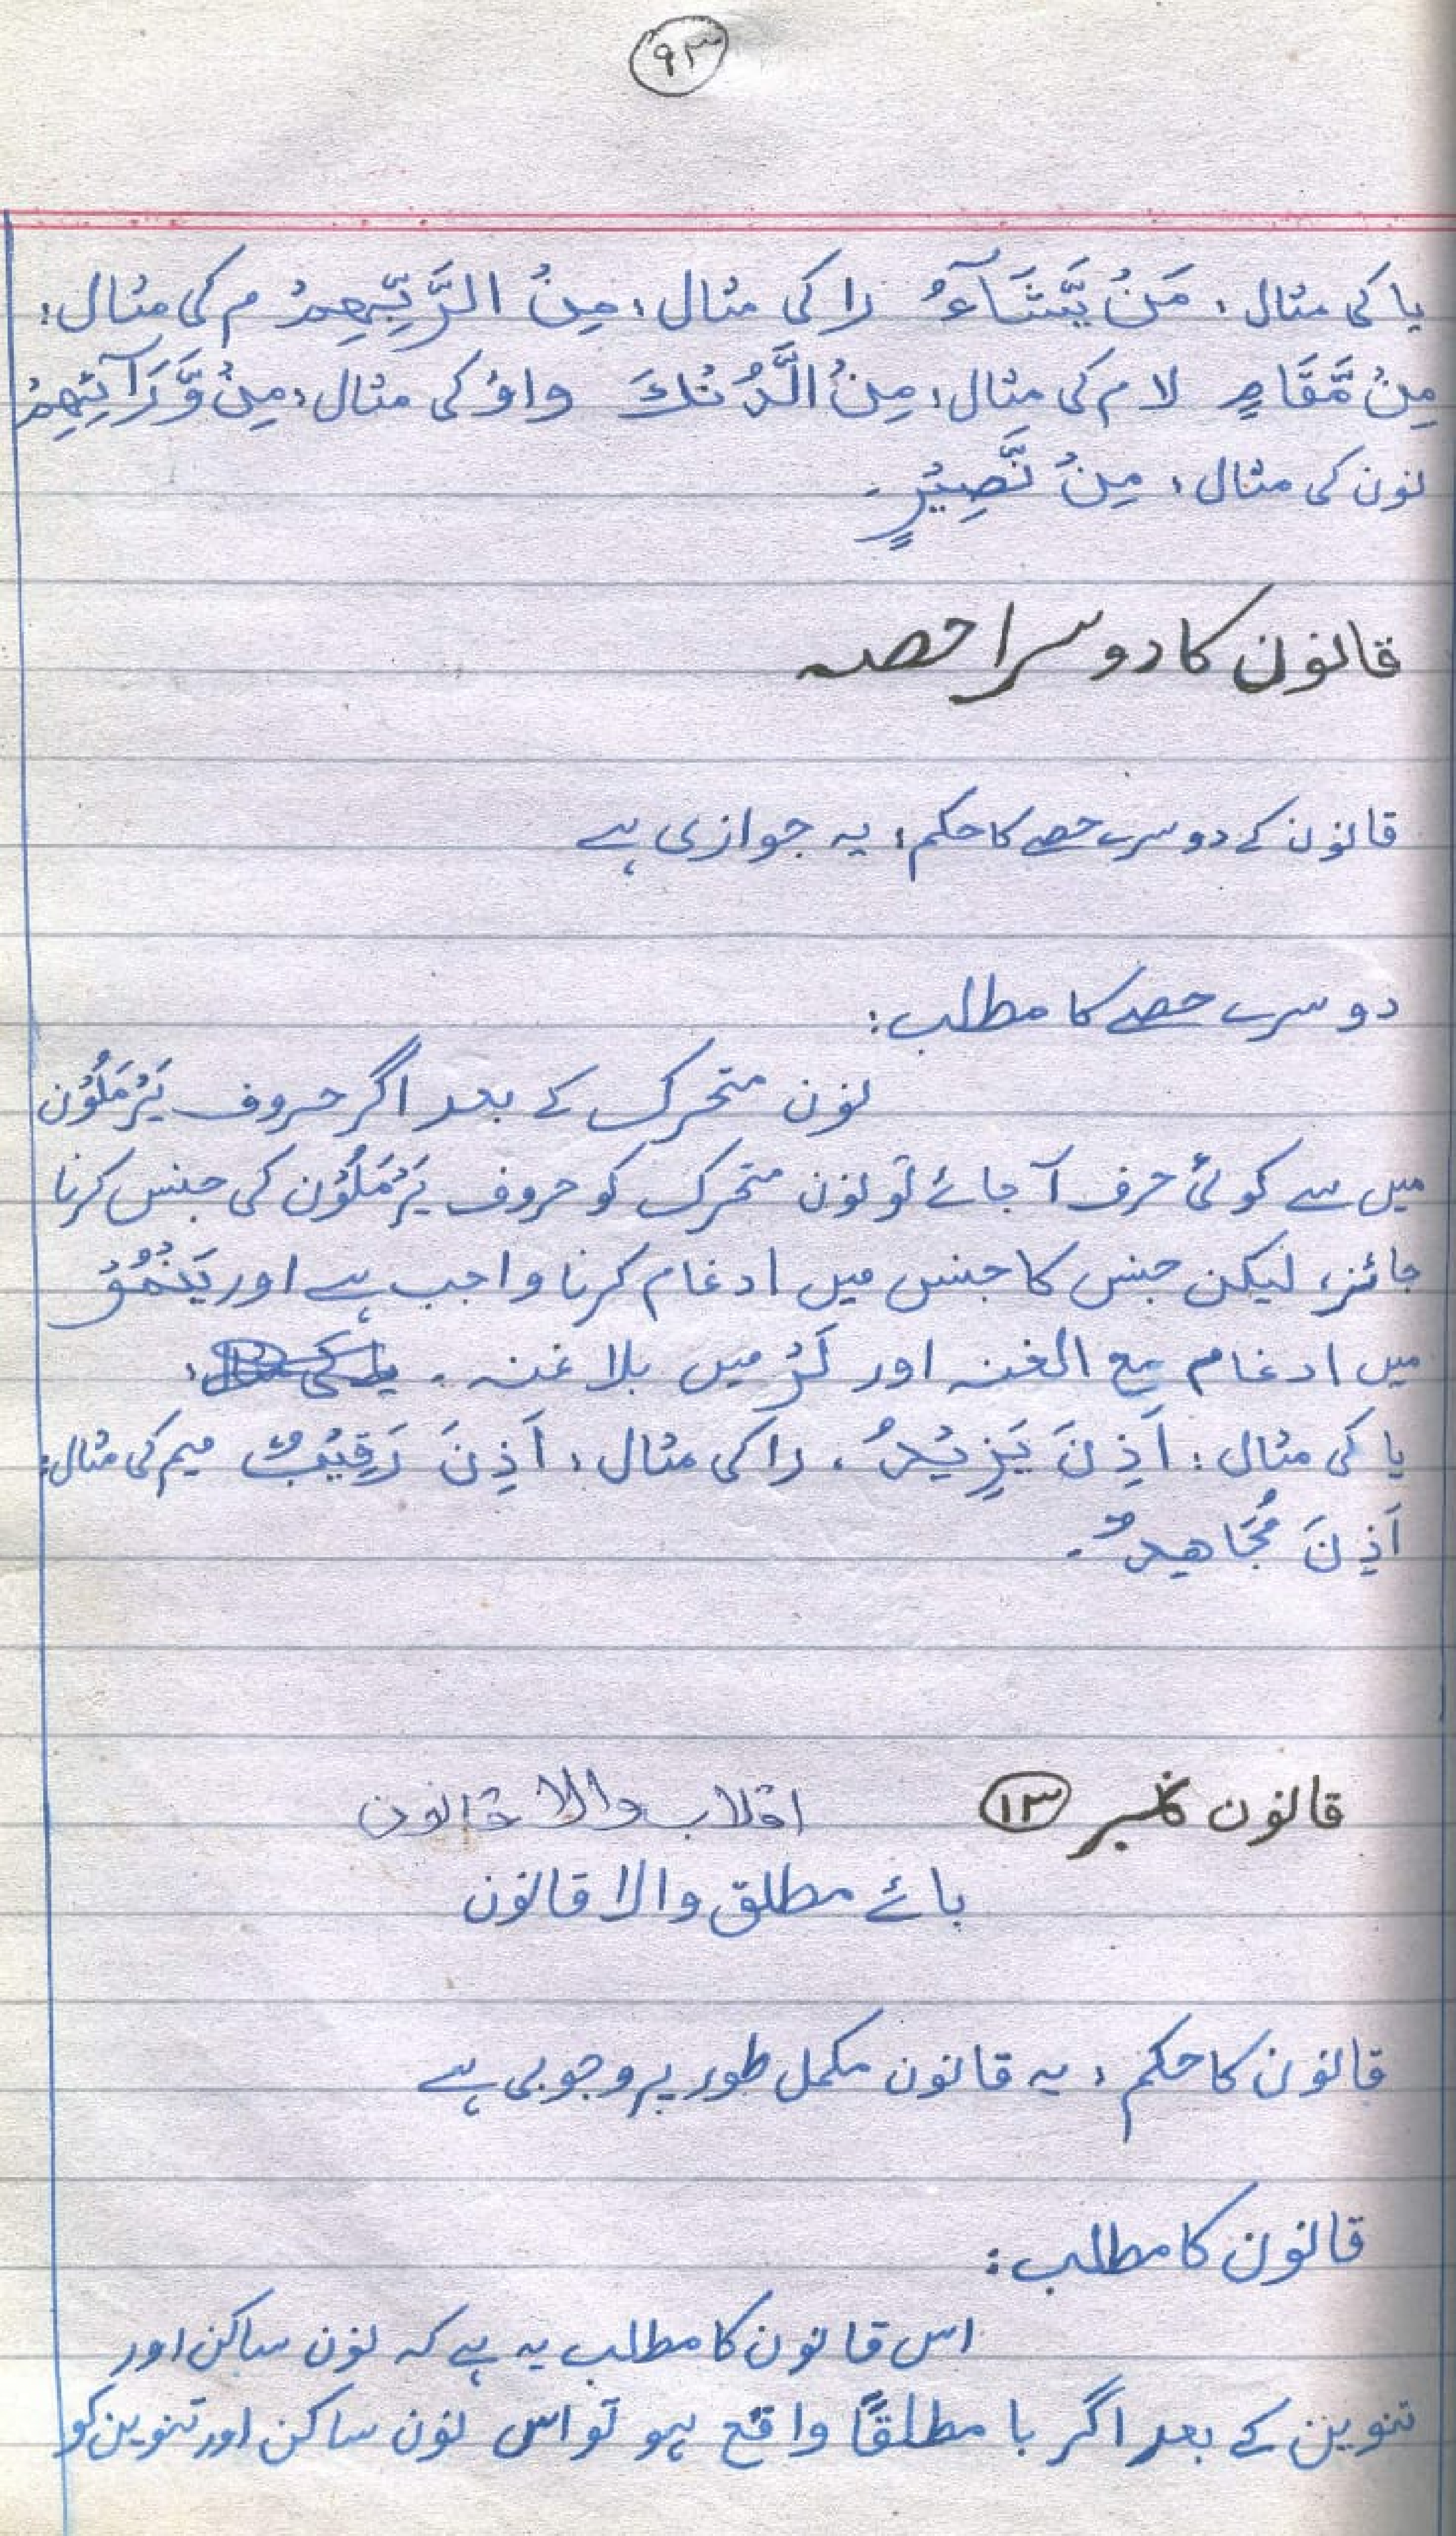 ۹۳
یا کی مثال: مَنْ یَّشَآءُ را کی مثال: مِنْ الرَّبِّهِمْ م کی مثال:
مِنْ مَّقَامٍ لام کی مثال: مِنْ الَّدُنْكَ واؤ کی مثال: مِنْ وَّرَآئِهِمْ
نون کی مثال: مِنْ نَّصِیْرٍ۔
قانون کا دوسرا حصہ
قانون کے دوسرے حصے کا حکم: یہ جوازی ہے
دوسرے حصے کا مطلب:
نون متحرک کے بعد اگر حروف یَرْمَلُوْن
میں سے کوئی حرف آ جائے تو نون متحرک کو حروف یَرْمَلُوْن کی جنس کرنا
جائز، لیکن جنس کا جنس میں ادغام کرنا واجب ہے اور یَنْمُوْ
میں ادغام مع الغنہ اور لَرْ میں بلا غنہ۔
یا کی مثال: اَذِنَ یَزِیْدُ، را کی مثال: اَذِنَ رَقِیْبٌ میم کی مثال:
اَذِنَ مُجَاهِدٌ۔
قانون نمبر ۱۳ اقلاب والا قانون
بائے مطلق والا قانون
قانون کا حکم: یہ قانون مکمل طور پر وجوبی ہے
قانون کا مطلب:
اس قانون کا مطلب یہ ہے کہ نون ساکن اور
تنوین کے بعد اگر با مطلقاً واقع ہو تو اس نون ساکن اور تنوین کو